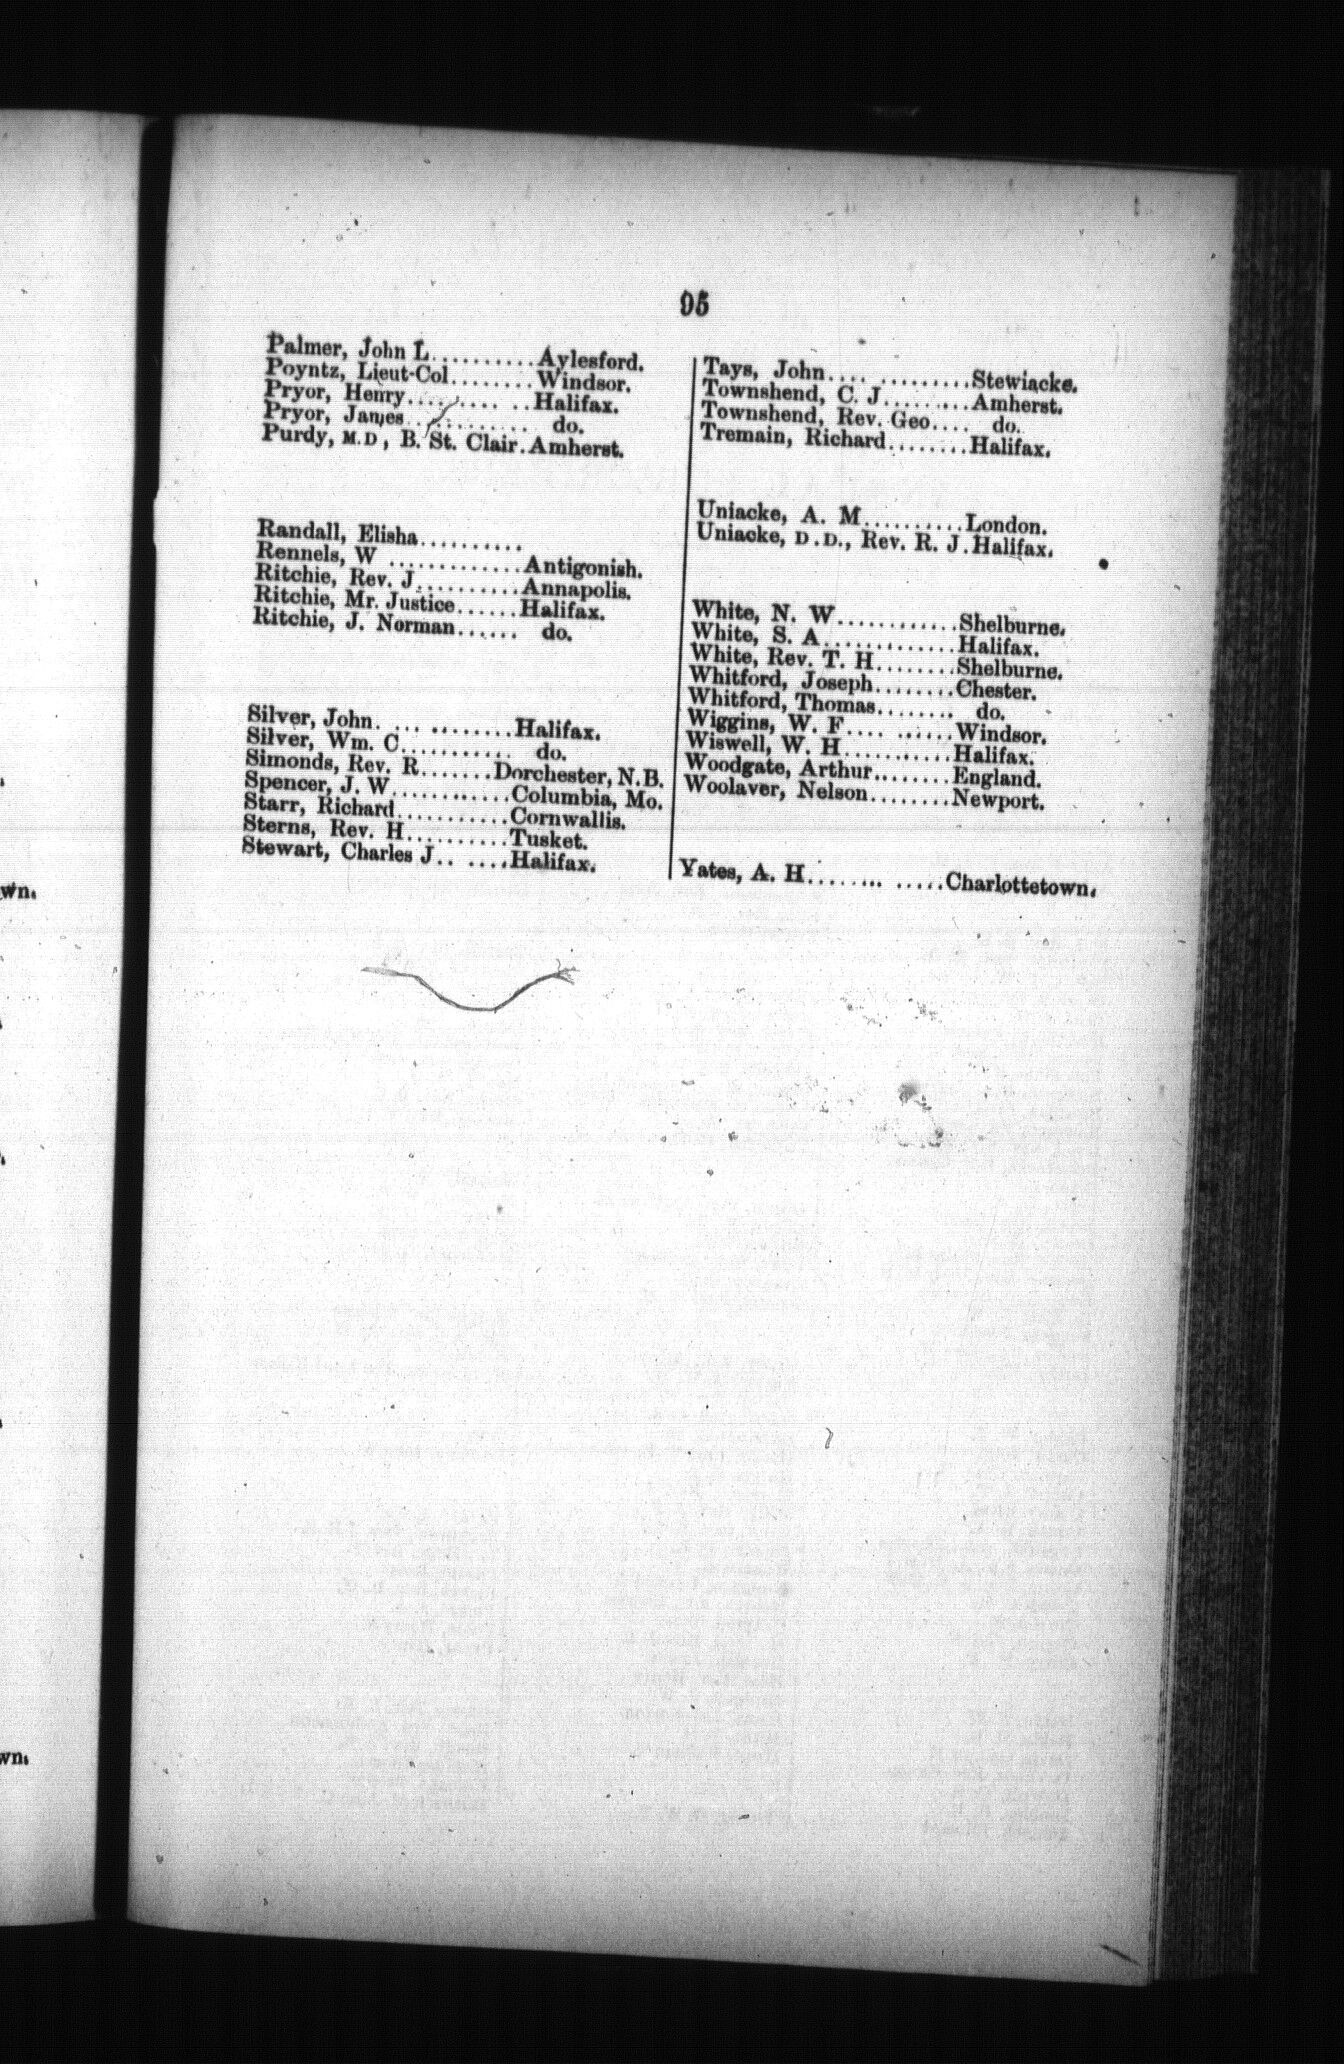 95
Palmer, John L..........Aylesford.
Poyntz, Lieut-Col........Windsor.
Pryor, Henry......... ..Halifax.
Pryor, James............ do.
Purdy, M.D , B. St. Clair.Amherst.
Randall, Elisha..........
Rennels, W .............Antigonish.
Ritchie, Rev. J..........Annapolis.
Ritchie, Mr. Justice......Halifax.
Ritchie, J. Norman...... do.
Silver, John. ... ........Halifax.
Silver, Wm. C........... do.
Simonds, Rev. R.......Dorchester, N.B.
Spencer, J. W...........Columbia, Mo.
Starr, Richard...........Cornwallis.
Sterns, Rev. H..........Tusket.
Stewart, Charles J.. ....Halifax.
Tays, John.... .........Stewiacke.
Townshend, C. J........Amherst.
Townshend, Rev. Geo.... do.
Tremain, Richard........Halifax.
Uniacke, A. M..........London.
Uniacke, D.D., Rev. R. J.Halifax.
White, N. W............Shelburne.
White, S. A.............Halifax.
White, Rev. T. H........Shelburne.
Whitford, Joseph........Chester.
Whitford, Thomas........ do.
Wiggins, W. F.... ......Windsor.
Wiswell, W. H..........Halifax.
Woodgate, Arthur.......England.
Woolaver, Nelson........Newport.
Yates, A. H........ .....Charlottetown.
wn.
wn.